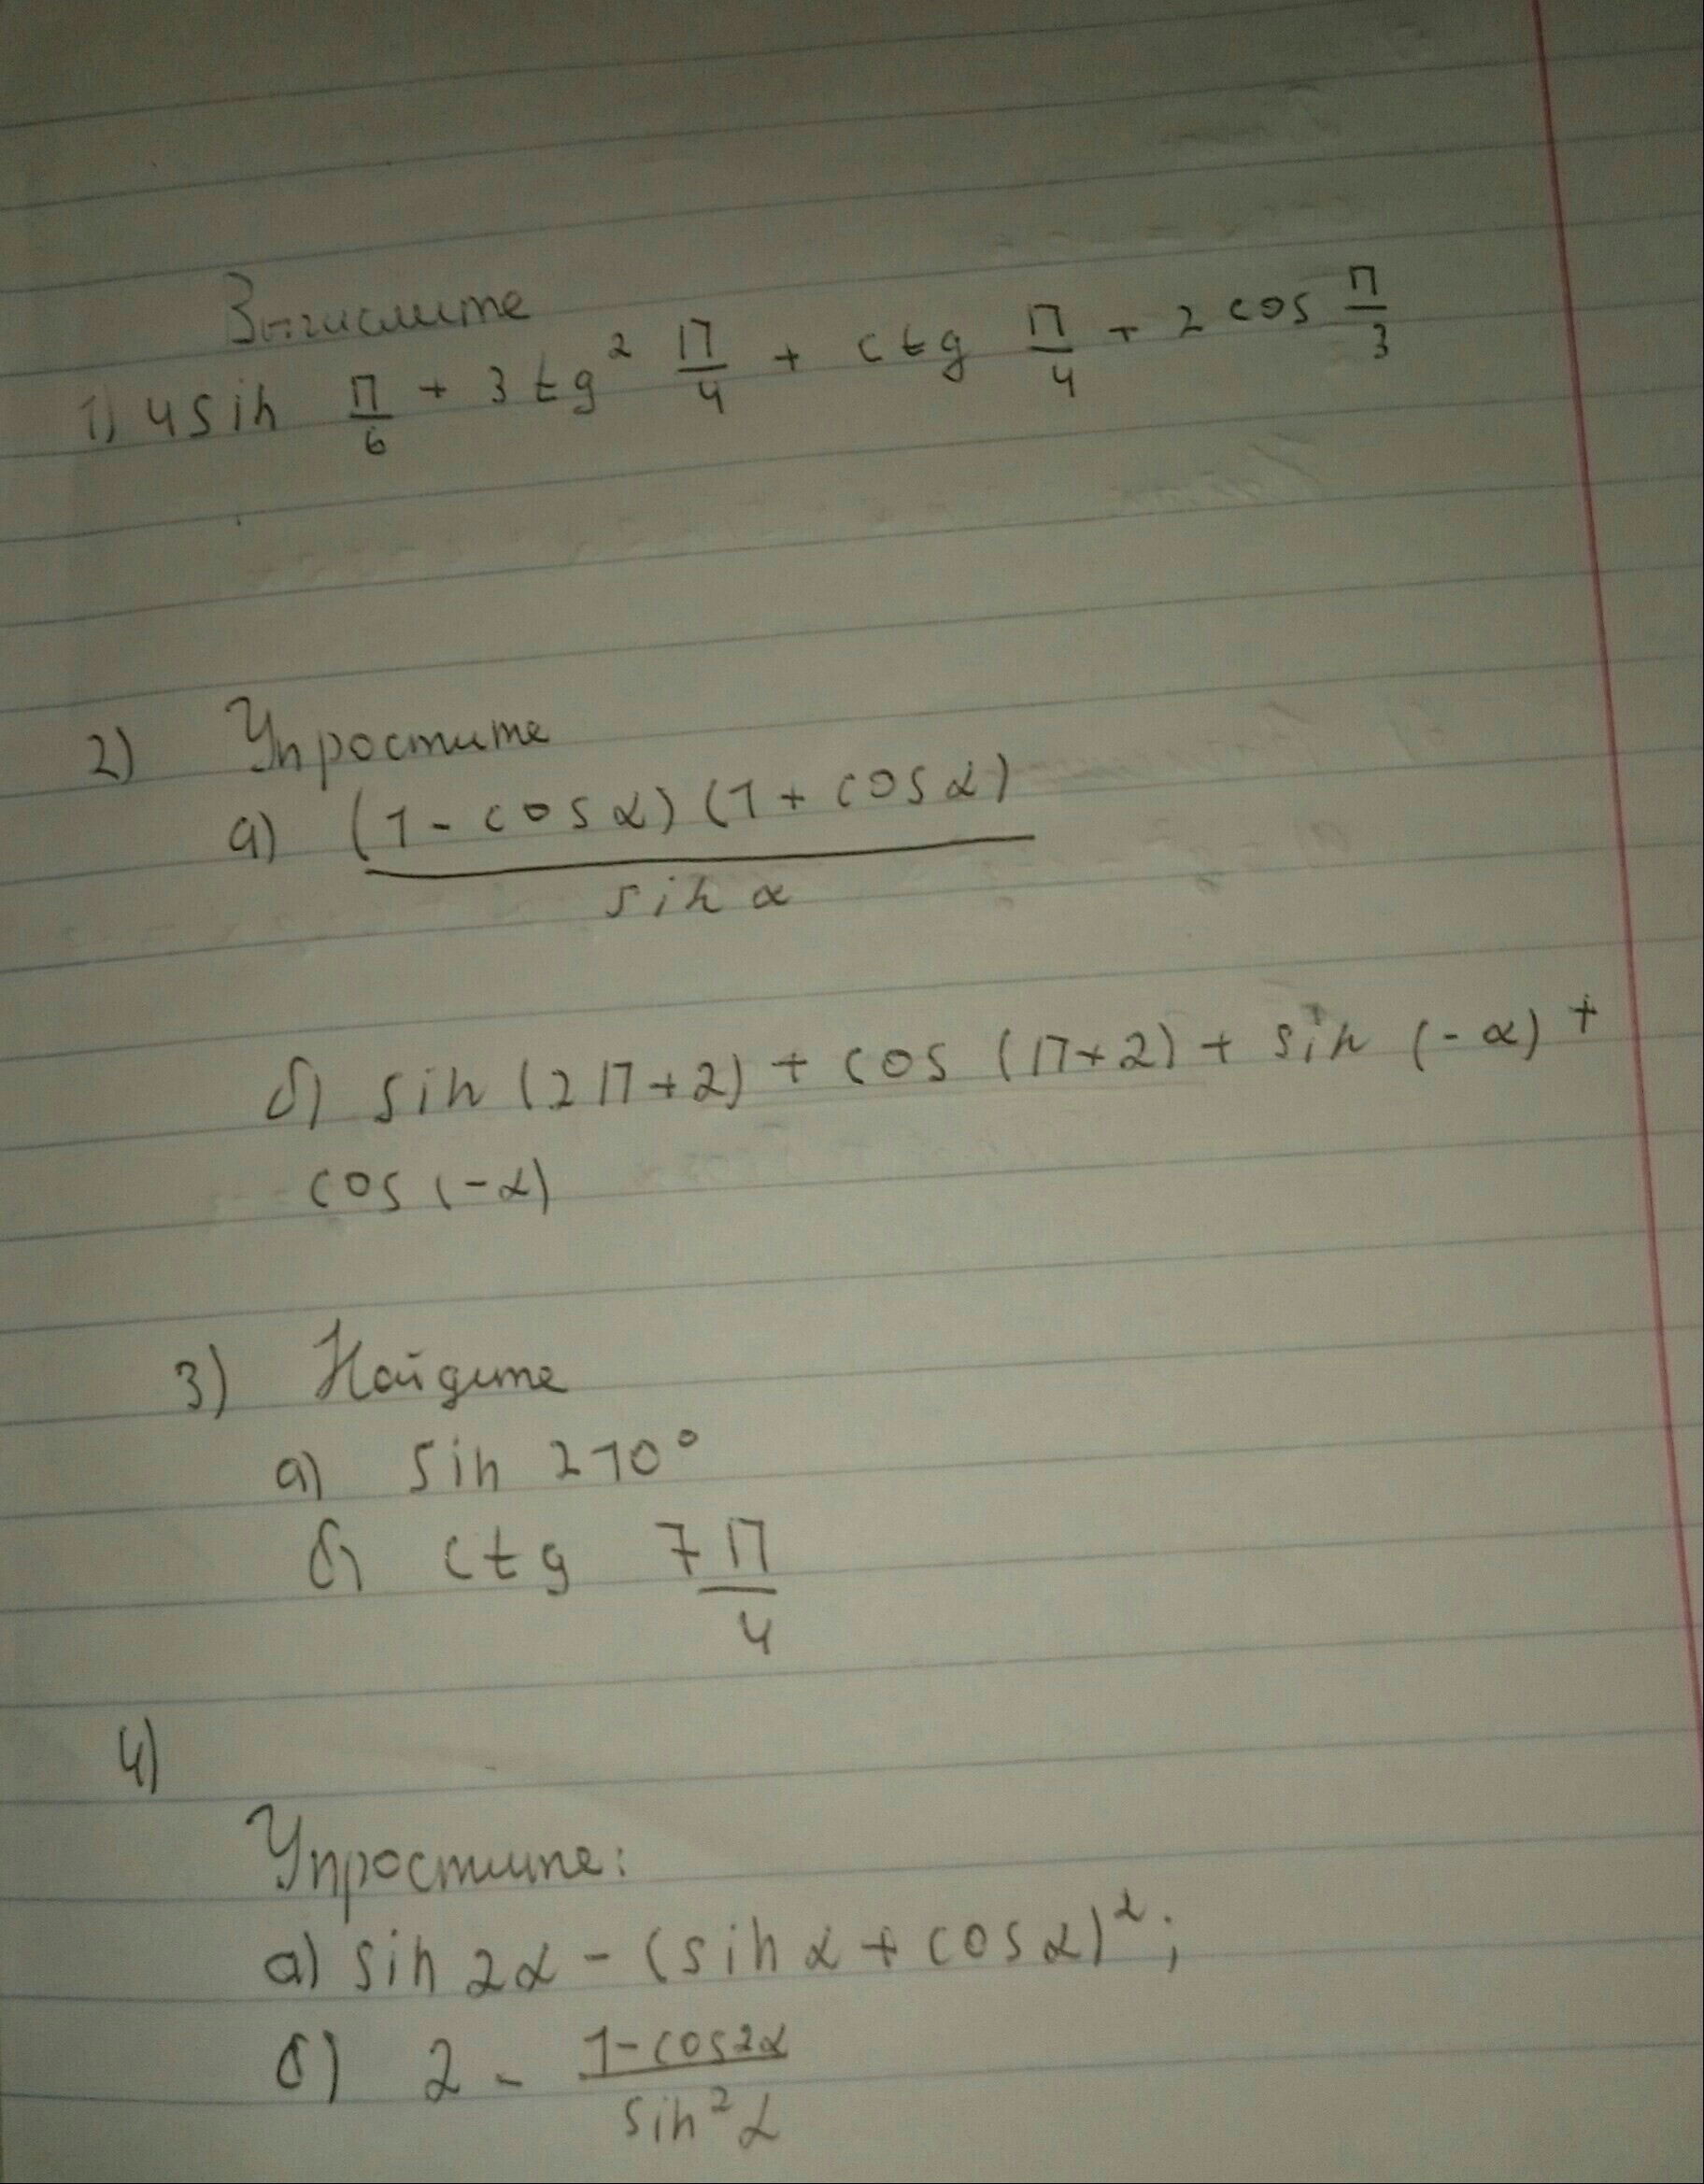 Вычислите
1) 4 sin π/6 + 3 tg² π/4 + ctg π/4 + 2 cos π/3
2) Упростите
а) (1 - cos α) (1 + cos α)
sin α
б) sin (2π+2) + cos (π+2) + sin (-α) +
cos (-α)
3) Найдите
а) sin 210°
б) ctg 7π/4
4)
Упростите:
а) sin 2α - (sin α + cos α)²;
б) 2 - 1-cos2α
sin² α